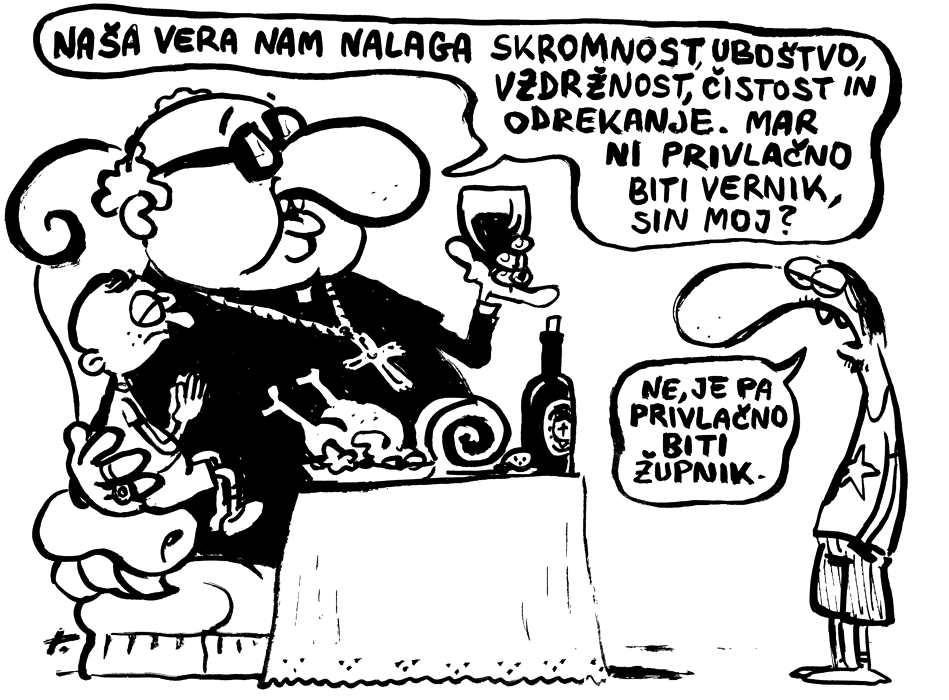 NAŠA VERA NAM NALAGA SKROMNOST, UBOŠTVO,
VZDRŽNOST, ČISTOST IN
ODREKANJE. MAR
NI PRIVLAČNO
BITI VERNIK,
SIN MOJ?
NE, JE PA
PRIVLAČNO
BITI
ŽUPNIK.